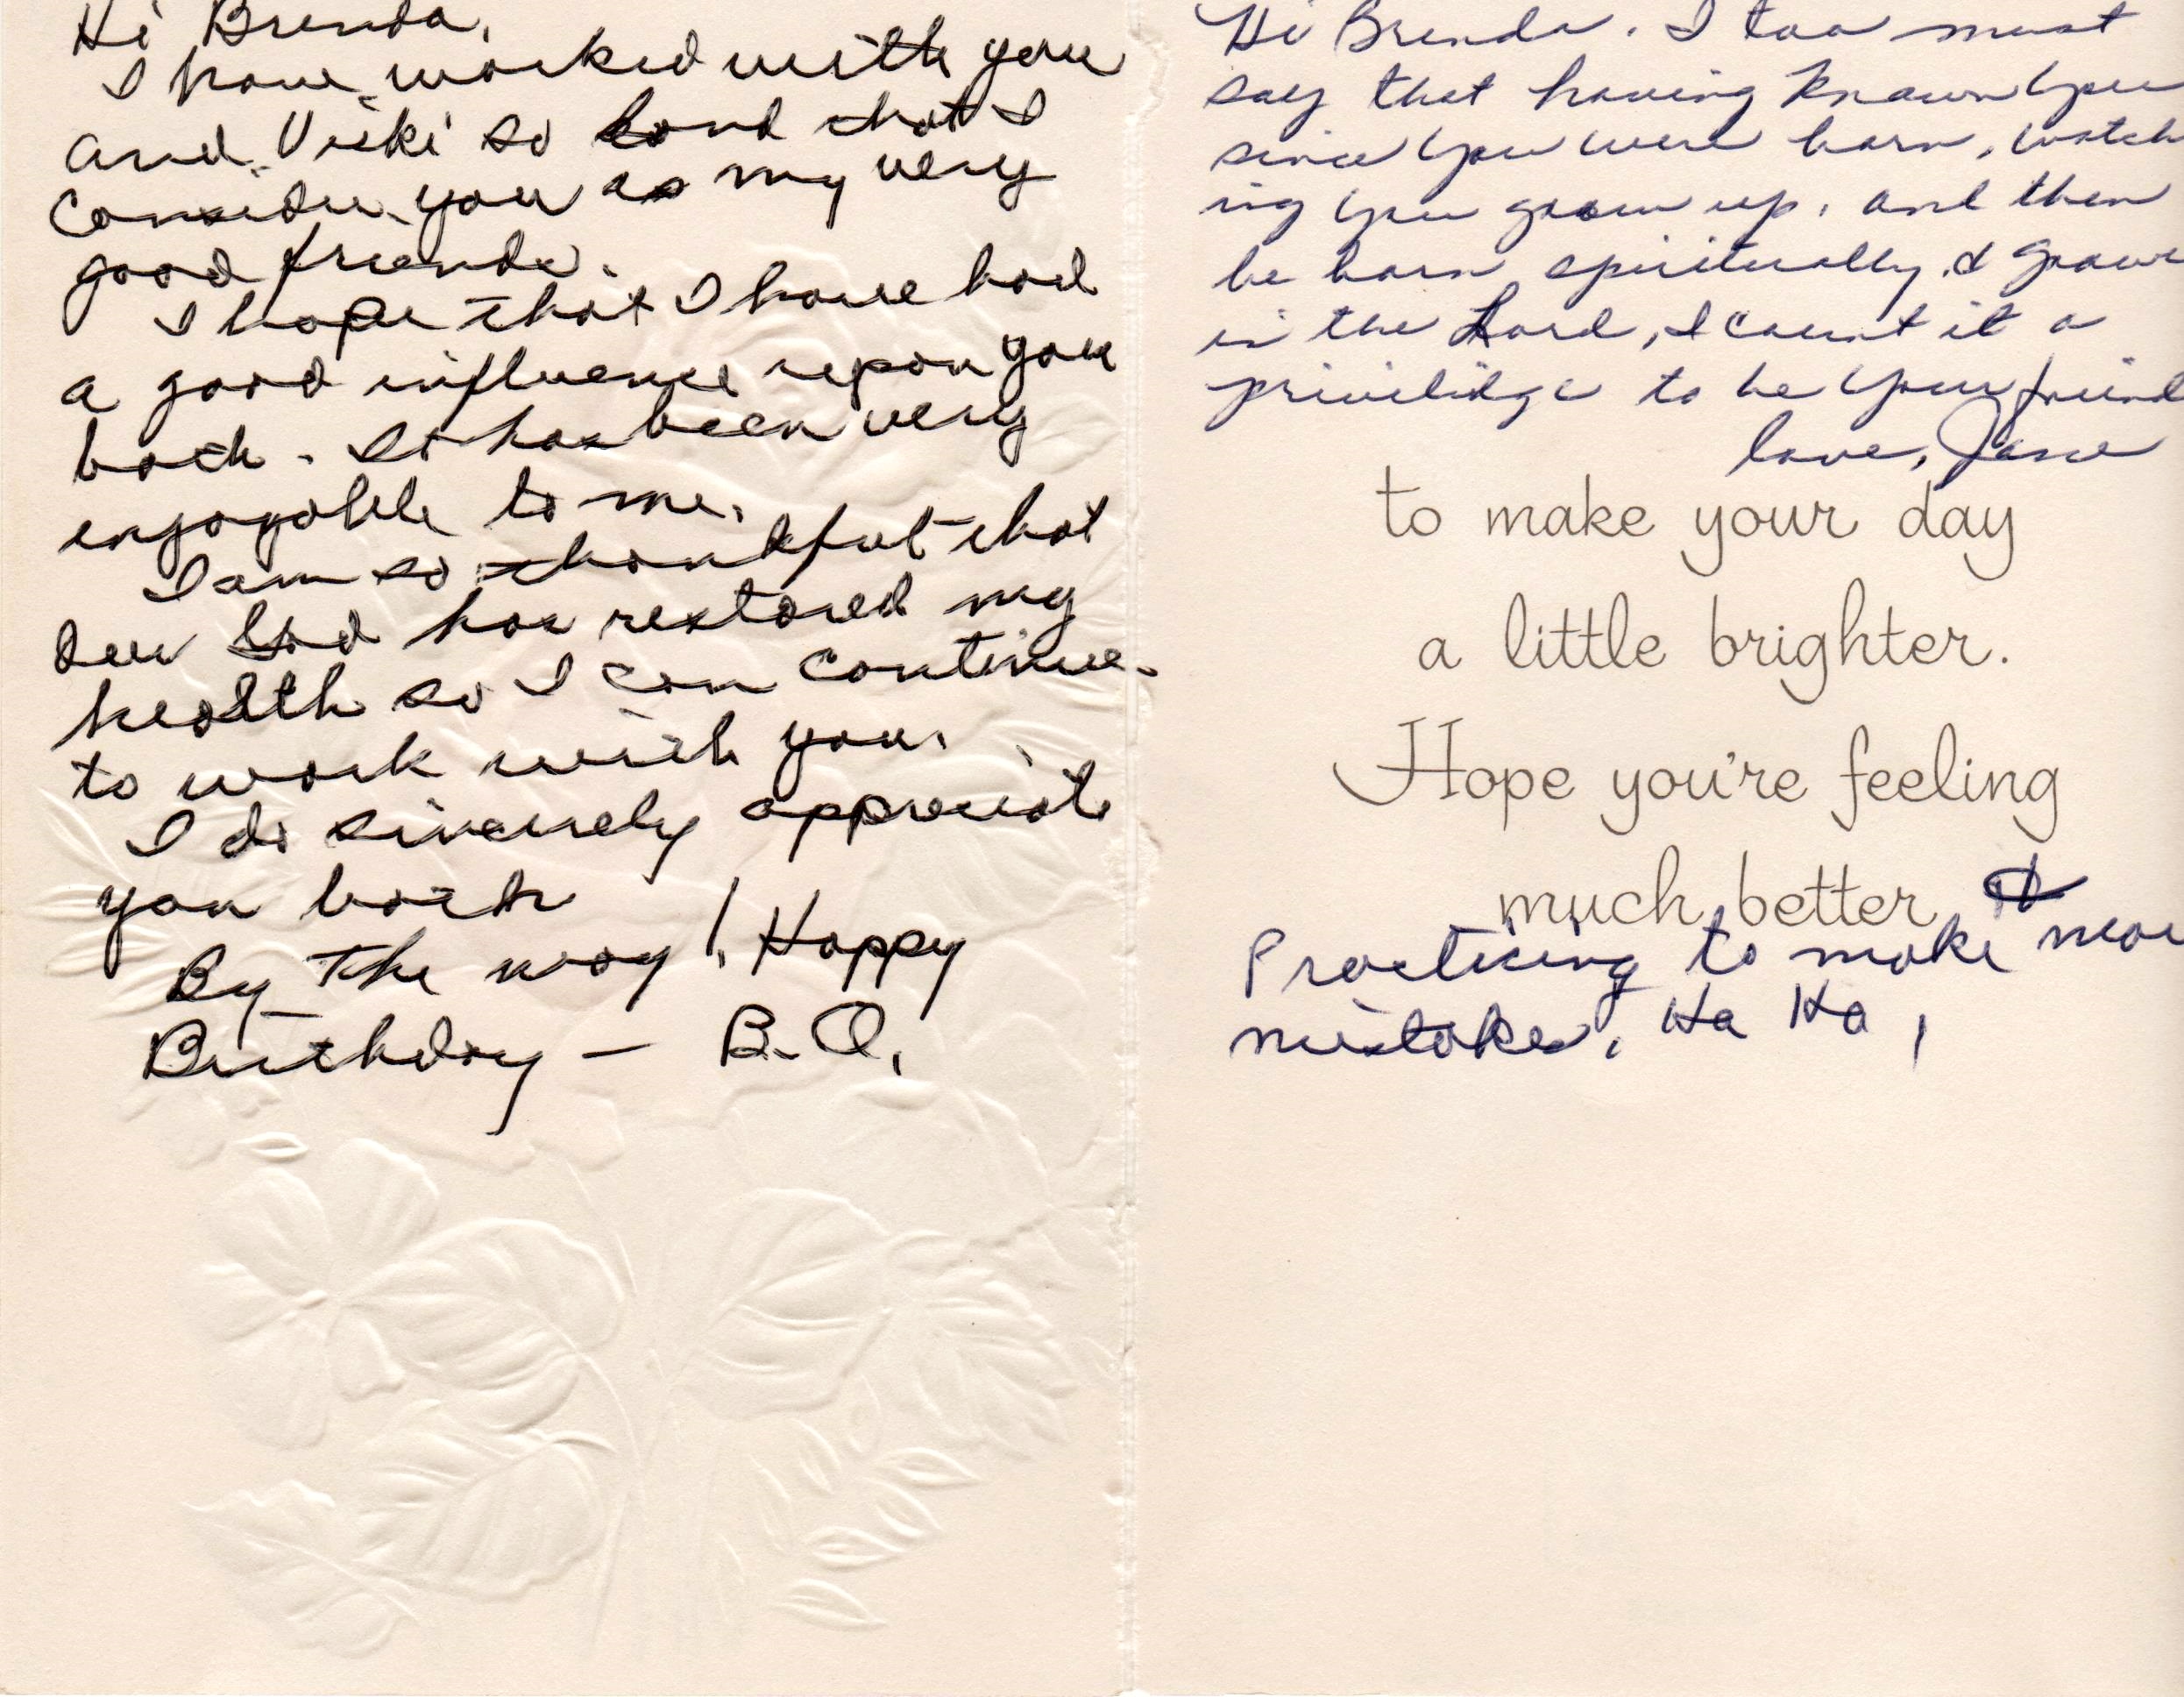 Hi Brenda,
I have worked with you
and Vicki so long that I
consider you as my very
good friends.
I hope that I have had
a good influence upon you
both. It has been very
enjoyable to me.
I am so thankful that
our God has restored my
health so I can continue
to work with you.
I do sincerely appreciate
you both
By the way! Happy
Birthday — B.O.
Hi Brenda. I too must
say that having known you
since you were born, watch
ing you grow up, and then
be born spiritually & grow
in the Lord, I count it a
privilidge to be your friend
love, Jane
to make your day
a little brighter.
Hope you're feeling
much better &
Practicing to make more
mistakes. Ha Ha!